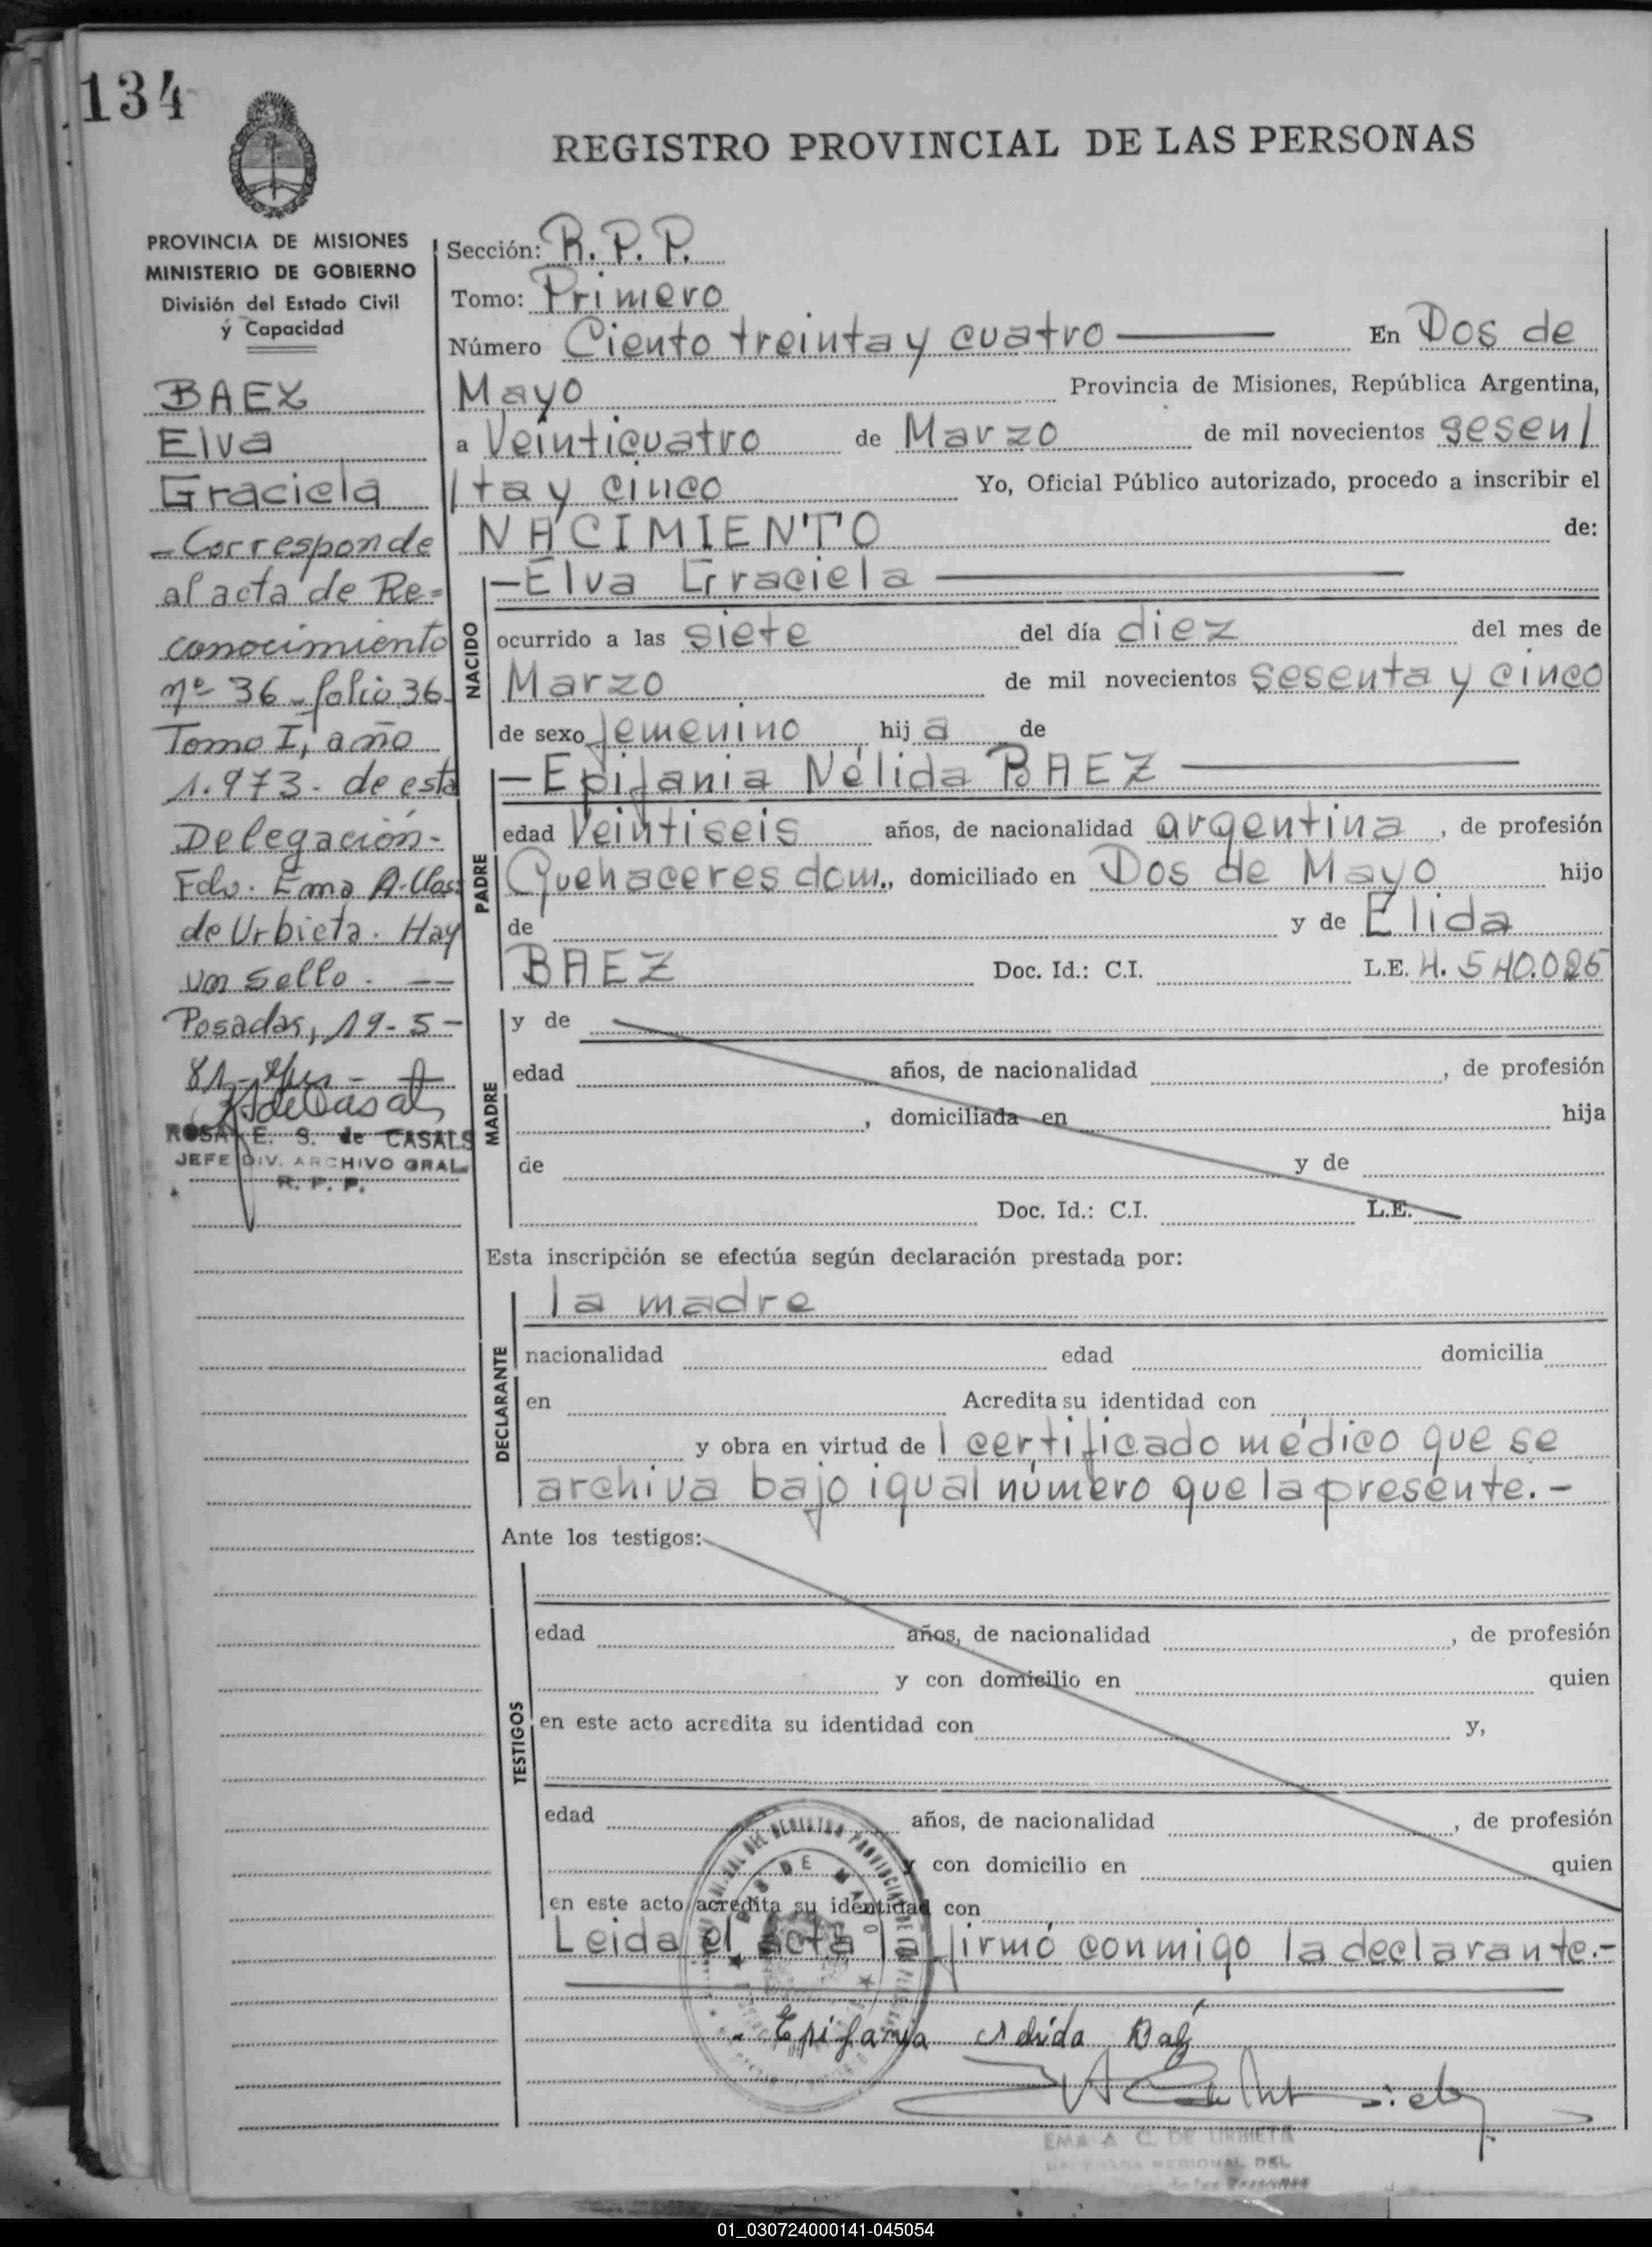 134
REGISTRO PROVINCIAL DE LAS PERSONAS
PROVINCIA DE MISIONES
MINISTERIO DE GOBIERNO
División del Estado Civil
y Capacidad
BAEZ
Elva
Graciela
- Corresponde
al acta de Re=
conocimiento
nº 36 - folio 36.
Tomo I, año
1.973 - de esta
Delegación -
Fdo. Ema A.
de Urbieta. Hay
un sello. --
Posadas, 19-5-
81-
ROSA E. S. de CASALS
JEFE DIV. ARCHIVO GRAL.
R. P. P.
Sección: R.P.P.
Tomo: Primero
Número Ciento treinta y cuatro — En Dos de
Mayo Provincia de Misiones, República Argentina,
a Veinticuatro de Marzo de mil novecientos sesen/
/ta y cinco Yo, Oficial Público autorizado, procedo a inscribir el
NACIMIENTO de:
NACIDO
— Elva Graciela —
ocurrido a las siete del día diez del mes de
Marzo de mil novecientos sesenta y cinco
de sexo femenino hija de
PADRE
— Epifania Nélida BAEZ —
edad Veintiseis años, de nacionalidad argentina, de profesión
Quehaceres dom., domiciliado en Dos de Mayo hijo
de y de Elida
BAEZ Doc. Id.: C.I. L.E. 4.540.025
MADRE
y de
edad años, de nacionalidad , de profesión
, domiciliada en hija
de y de
Doc. Id.: C.I. L.E.
Esta inscripción se efectúa según declaración prestada por:
DECLARANTE
la madre
nacionalidad edad domicilia
en Acredita su identidad con
y obra en virtud de 1 certificado médico que se
archiva bajo igual número que la presente.-
Ante los testigos:
TESTIGOS
edad años, de nacionalidad , de profesión
y con domicilio en quien
en este acto acredita su identidad con y,
edad años, de nacionalidad , de profesión
y con domicilio en quien
en este acto acredita su identidad con
Leida el acta la firmó conmigo la declarante.-
Epifania Nelida Baez
EMA A. C. DE URBIETA
REGIONAL DEL
de las Personas
01_030724000141-045054